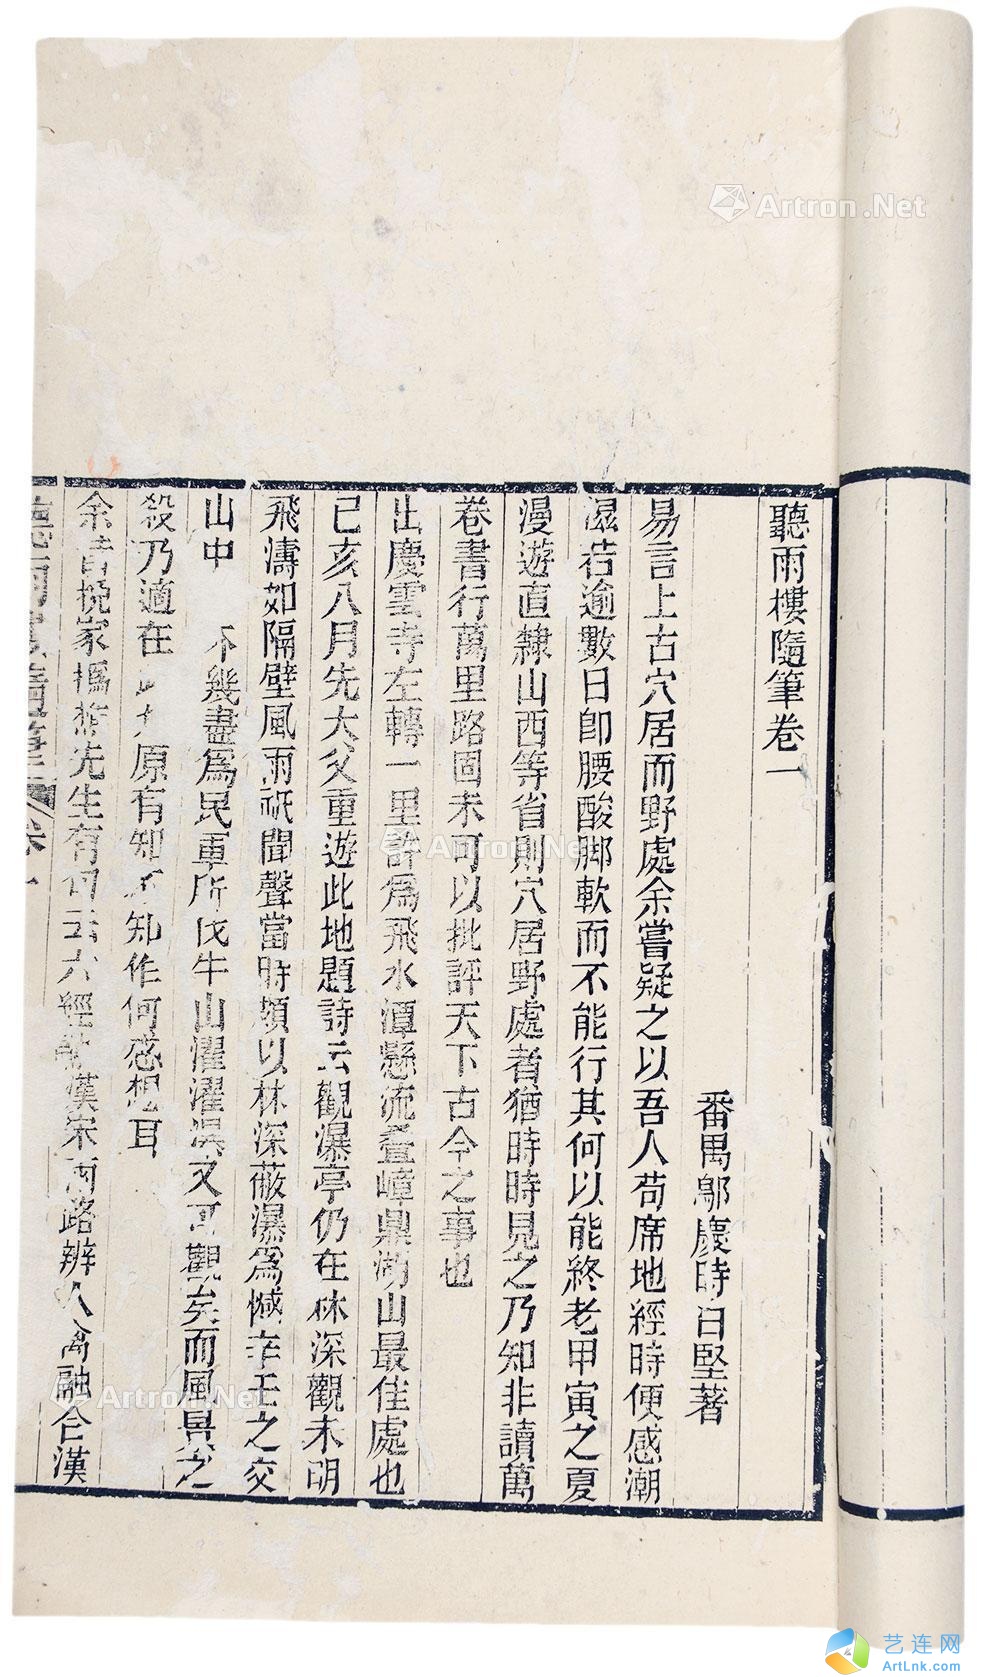 聽雨樓隨筆卷一
番禺鄔慶時白堅著
易言上古穴居而野處余嘗疑之以吾人苟席地經時便感潮
濕若逾數日卽腰酸脚軟而不能行其何以能終老甲寅之夏
漫遊直隸山西等省則穴居野處者猶時時見之乃知非讀萬
卷書行萬里路固未可以批評天下古今之事也
出慶雲寺左轉一里許爲飛水潭懸流疊嶂鼎湖山最佳處也
己亥八月先大父重遊此地題詩云觀瀑亭仍在林深觀未明
飛濤如隔壁風雨祇聞聲當時頗以林深蔽瀑爲憾辛壬之交
山中 木幾盡爲民軍所伐牛山濯濯瀑又可觀矣而風景之
殺乃適在 原有知不知作何感想耳
余昔挽家 先生有句云六經 漢宋兩路辨人禽融合漢
聽雨樓隨筆 卷一
Artron.Net
Artron.Net
Artron.Net
艺连网
ArtLnk.com